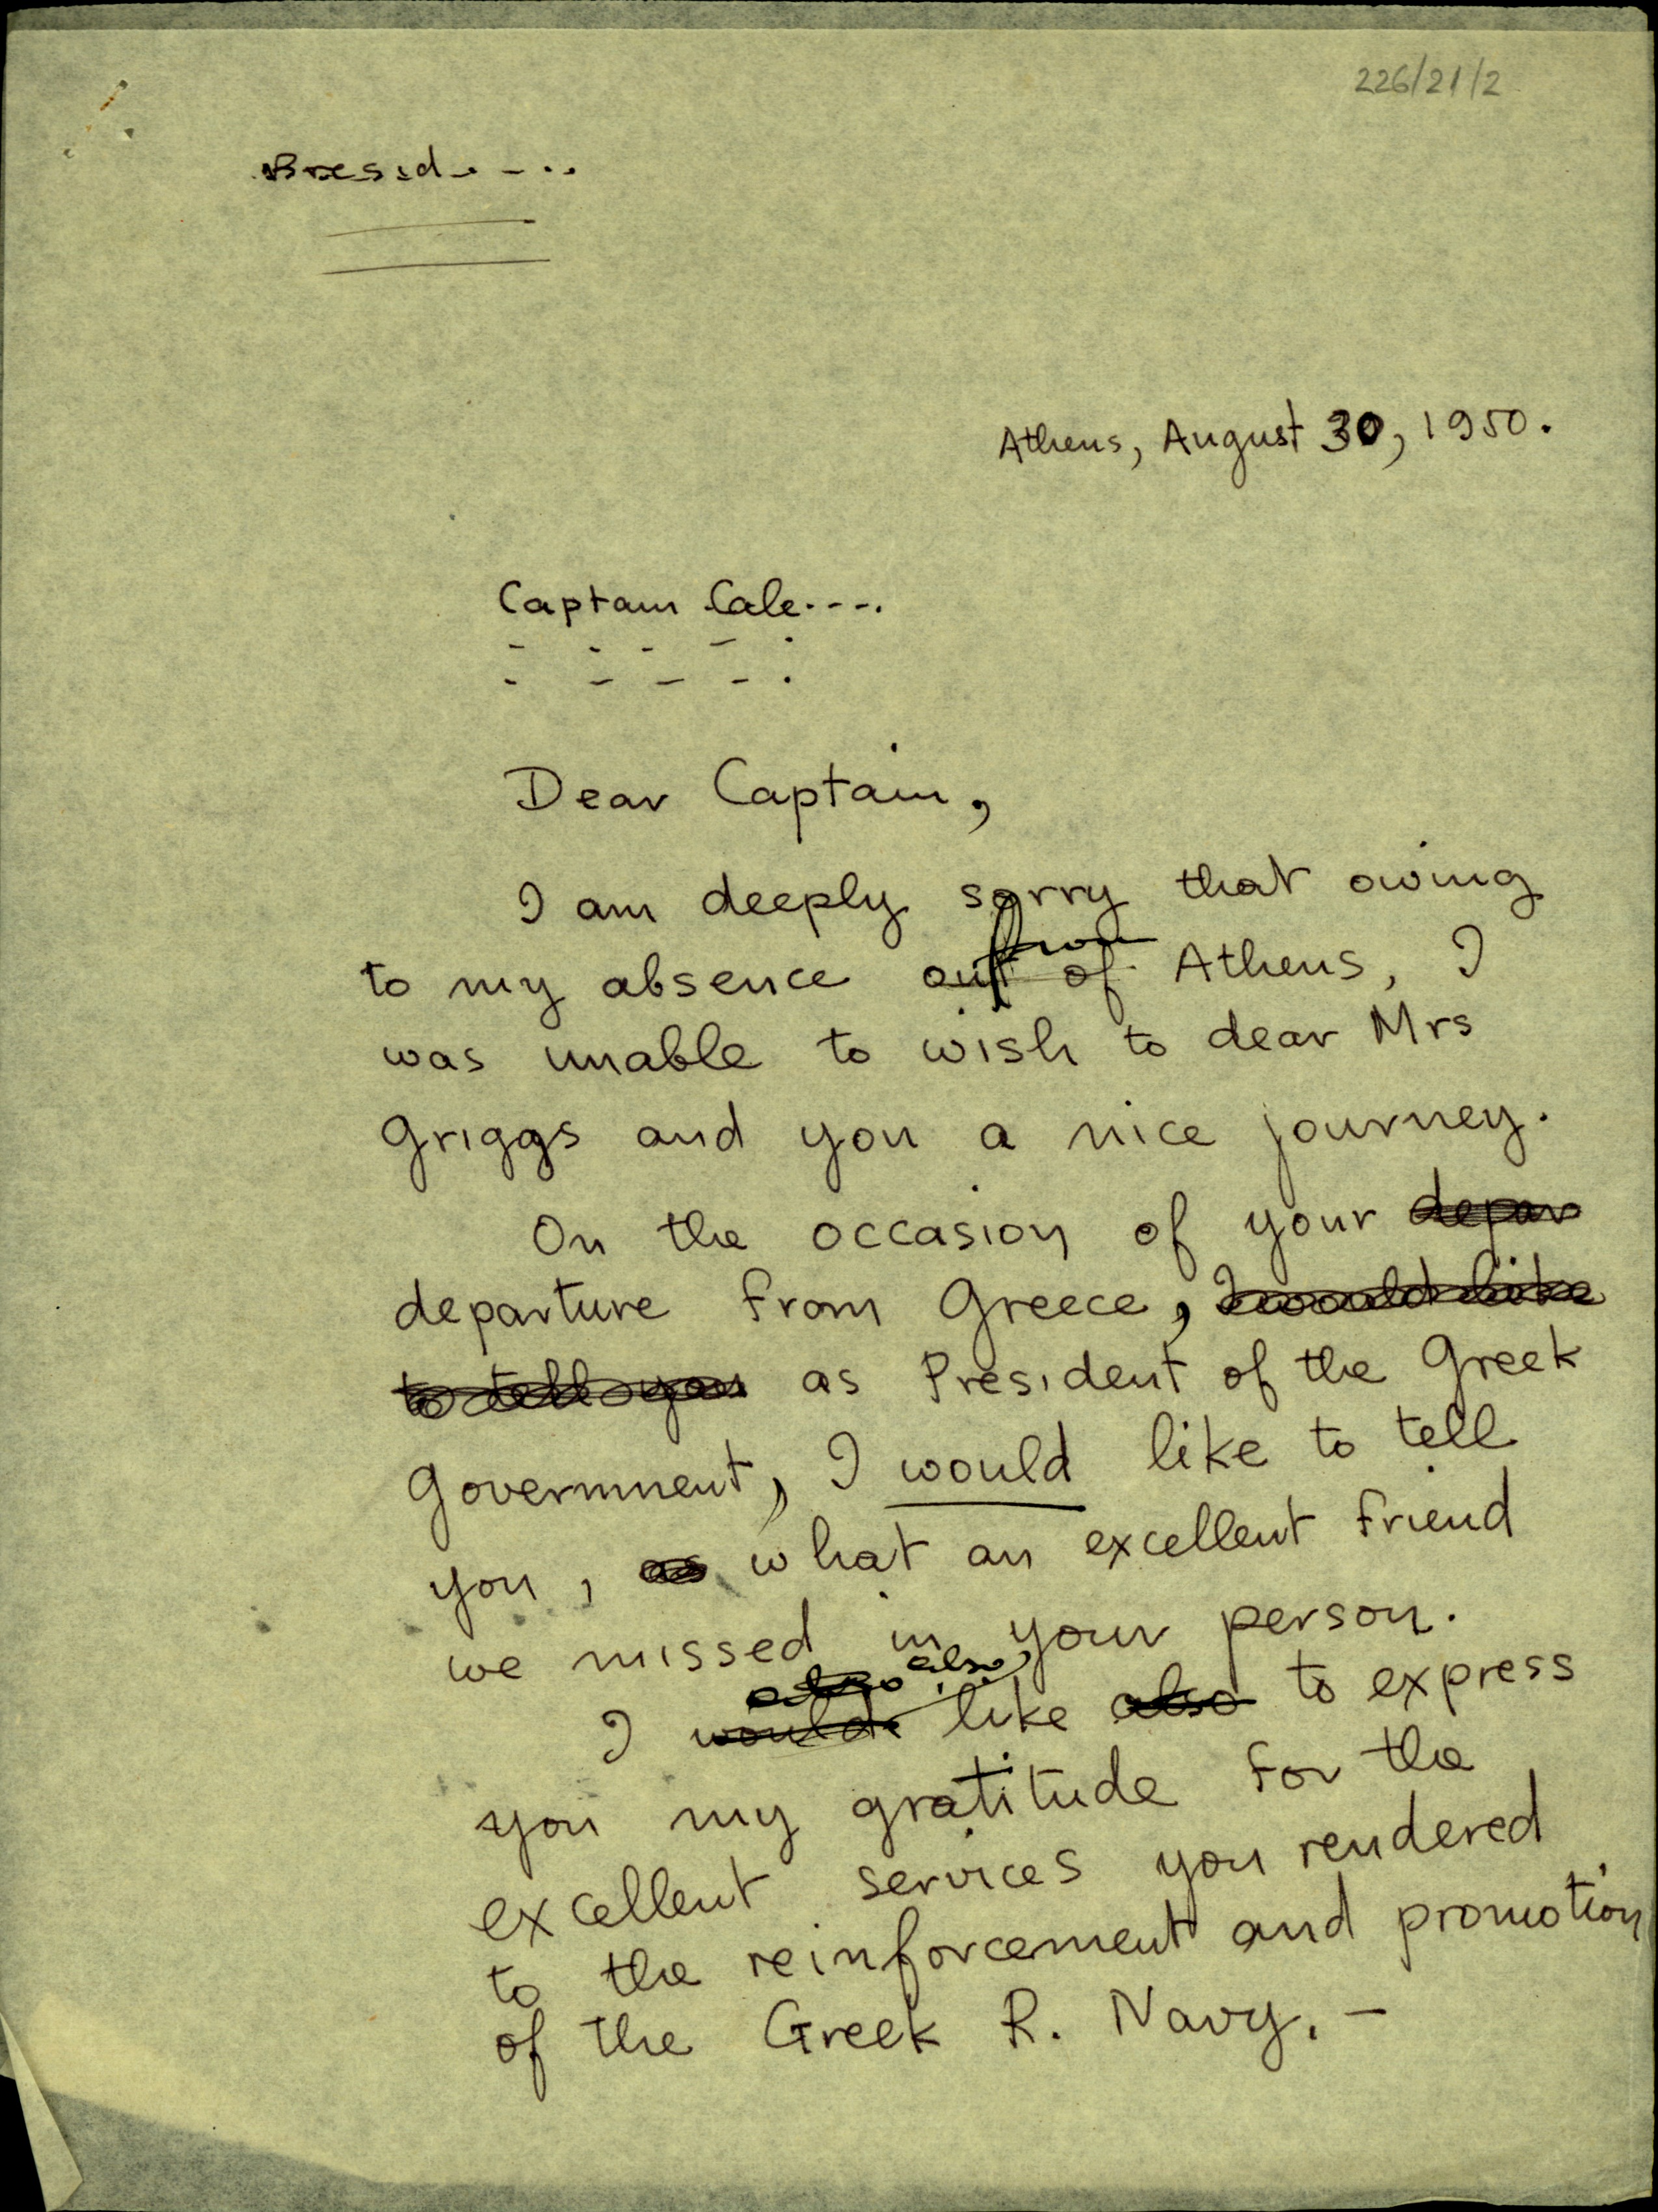 226/21/2
Presid. - - . .
Athens, August 30, 1950.
Captain Cale. - - - .
Dear Captain,
I am deeply sorry that owing
from
to my absence out of Athens, I
was unable to wish to dear Mrs
Griggs and you a nice journey.
On the occasion of your depar
departure from Greece, I would like
to tell you as President of the Greek
Government, I would like to tell
you, as what an excellent friend
we missed in your person.
also also
I would like also to express
you my gratitude for the
excellent services you rendered
to the reinforcement and promotion
of the Greek R. Navy. -